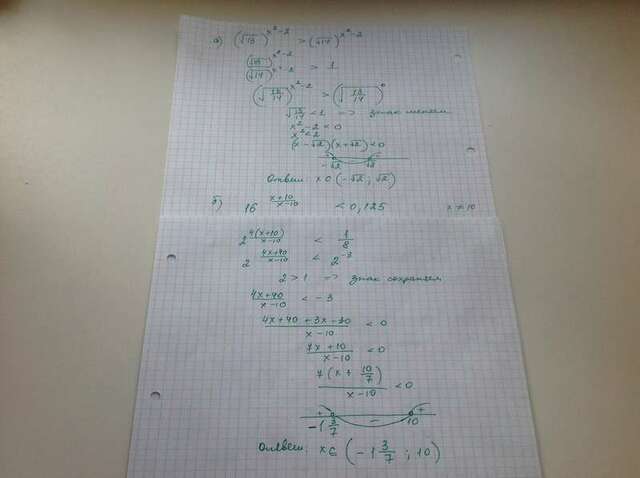 а) (√13)^(x²-2) > (√14)^(x²-2)
(√13)^(x²-2) / (√14)^(x²-2) > 1
(√(13/14))^(x²-2) > (√(13/14))^0
√(13/14) < 1 => знак меняем
x²-2 < 0
x² < 2
(x-√2)(x+√2) < 0
-√2 √2
Ответ: x ∈ (-√2; √2)
б) 16^((x+10)/(x-10)) < 0,125 x ≠ 10
2^(4(x+10)/(x-10)) < 1/8
2^((4x+40)/(x-10)) < 2^(-3)
2 > 1 => знак сохраняем
(4x+40)/(x-10) < -3
(4x+40+3x-30)/(x-10) < 0
(7x+10)/(x-10) < 0
7(x+10/7)/(x-10) < 0
+ - +
-1 3/7 10
Ответ: x ∈ (-1 3/7; 10)